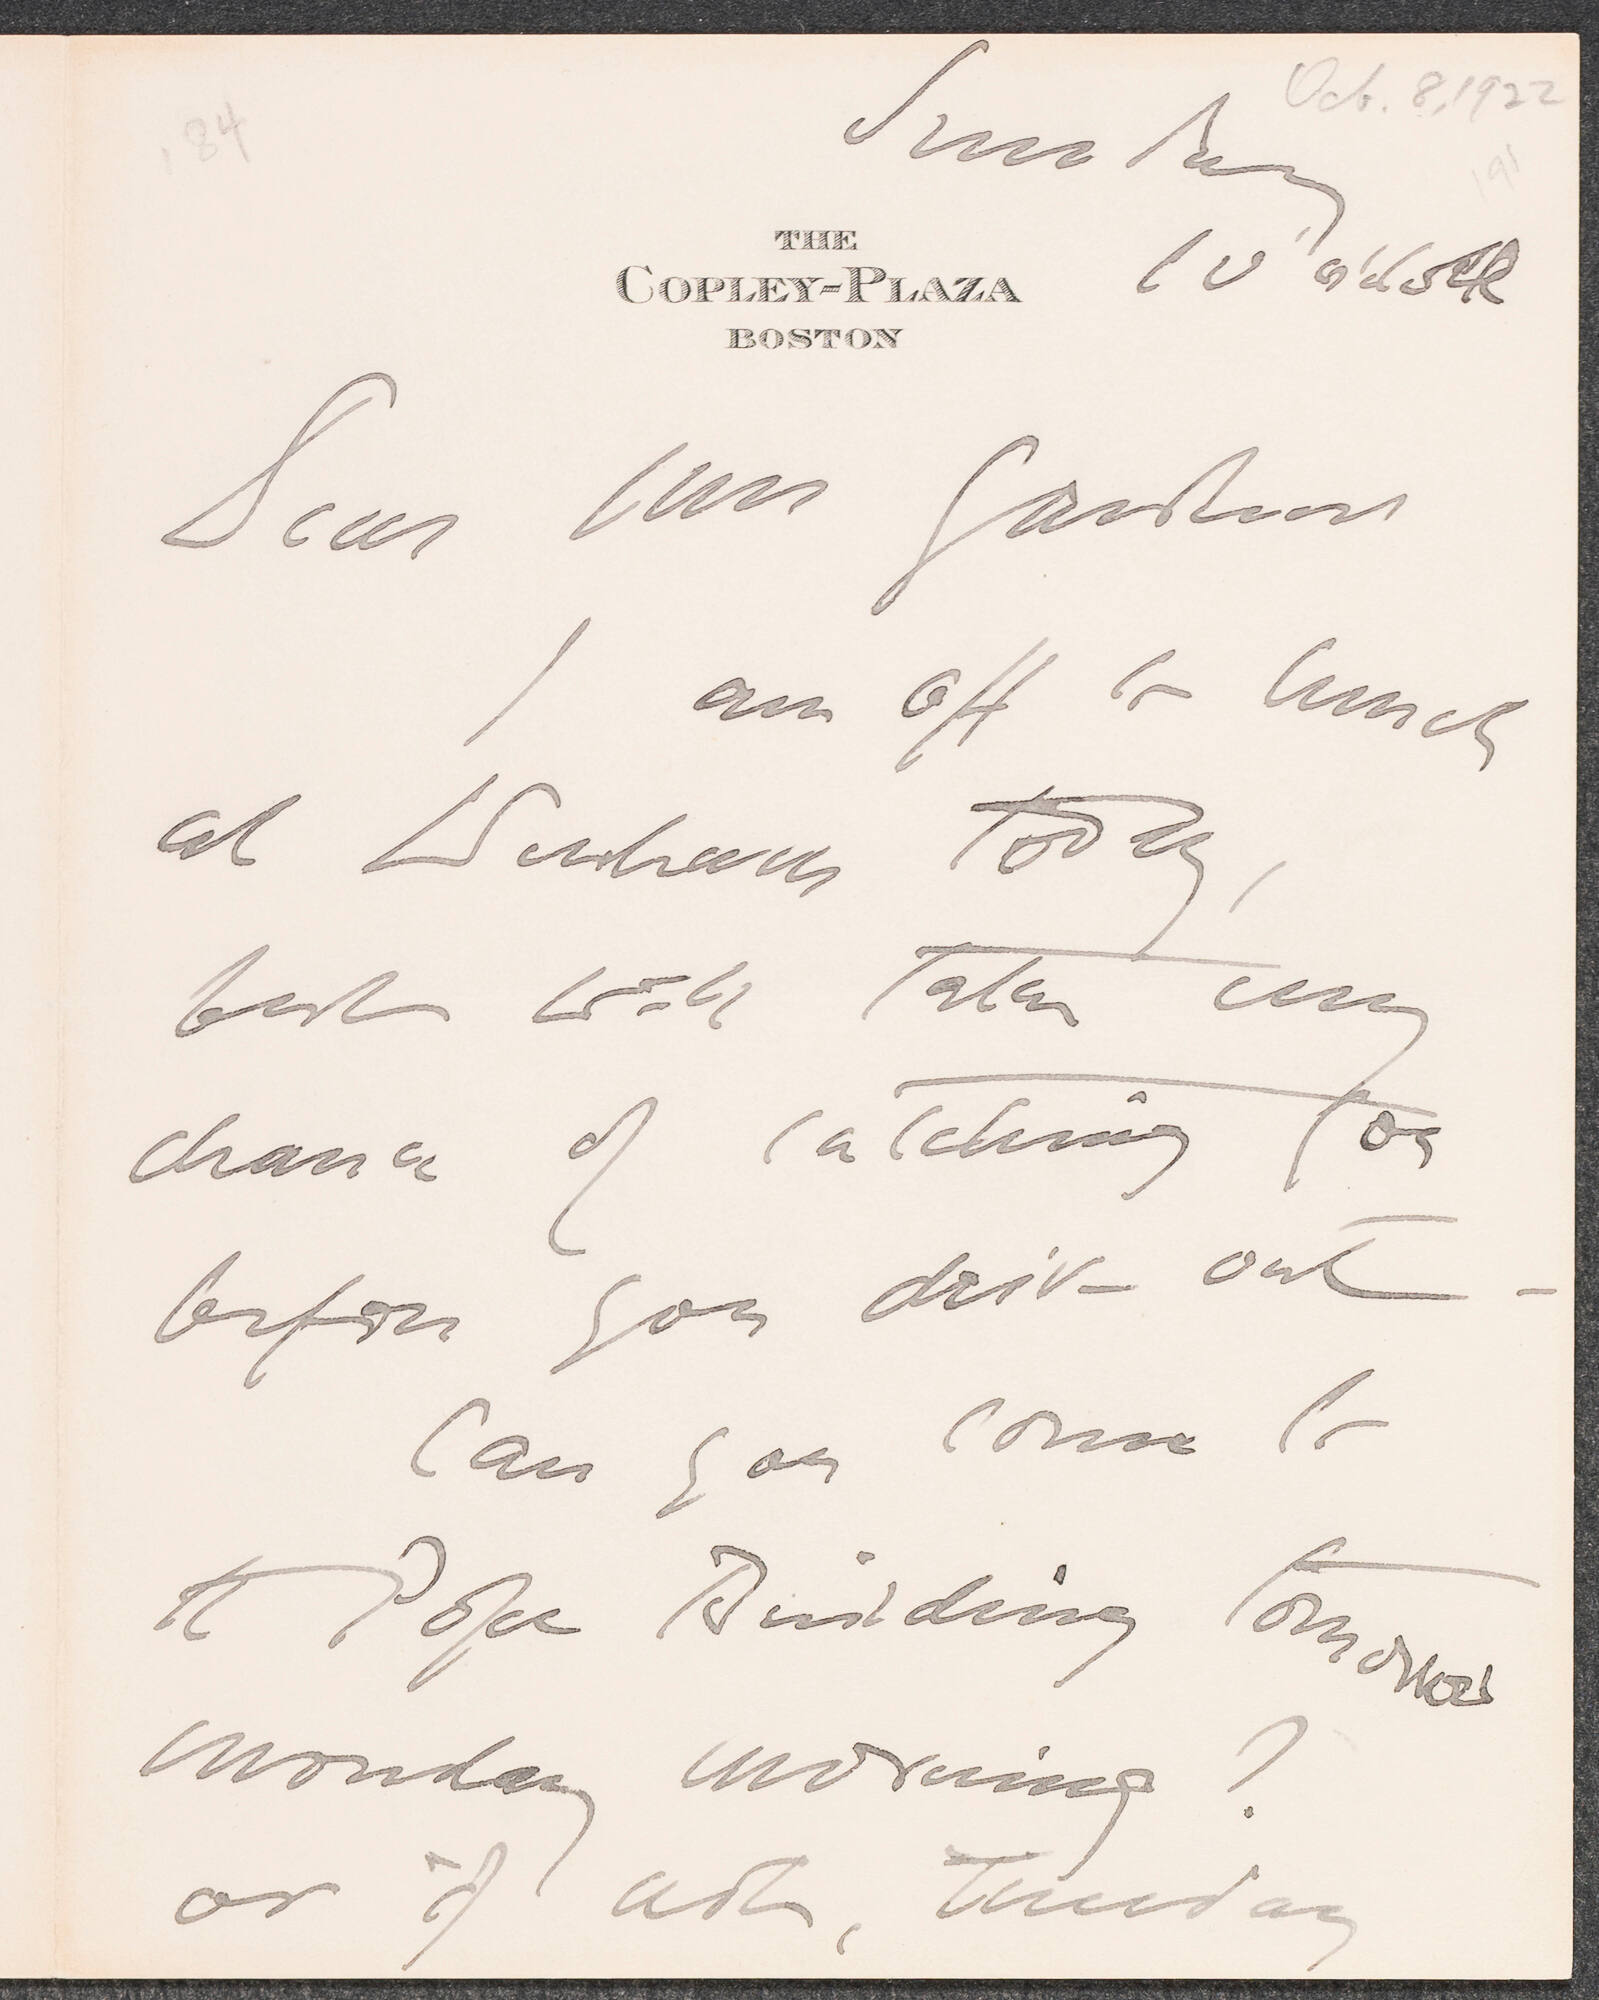 Oct. 8, 1922
184
191
Sunday
10 o'clock
THE
COPLEY-PLAZA
BOSTON
Dear Mrs Gardner
I am off to lunch
at Dedham today,
but will take my
chance of catching you
before you drive out -
Can you come to
the Pope Building tomorrow
Monday morning?
or if not, Tuesday